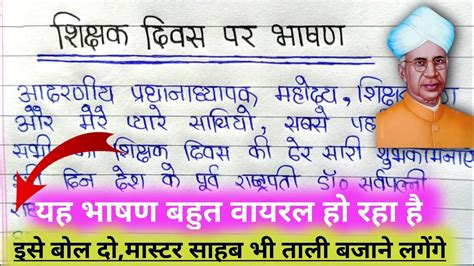 शिक्षक दिवस पर भाषण
आदरणीय प्रधानाध्यापक महोदय, शिक्षक
और मेरे प्यारे साथियो, सबसे
शिक्षक दिवस की ढेर सारी शुभकामनाएँ
दिन देश के पूर्व राष्ट्रपती डॉ० सर्वपल्ली
यह भाषण बहुत वायरल हो रहा है
इसे बोल दो,मास्टर साहब भी ताली बजाने लगेंगे